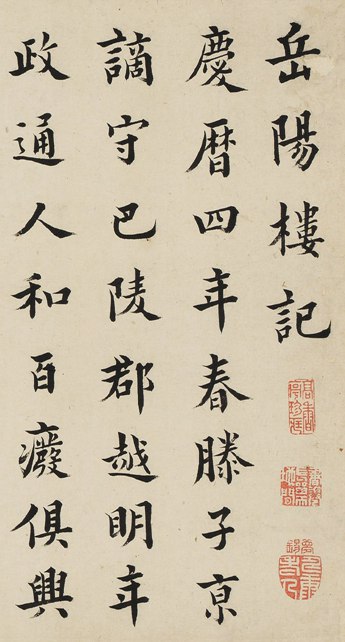 岳陽樓記
慶曆四年春滕子京
謫守巴陵郡越明年
政通人和百癈俱興